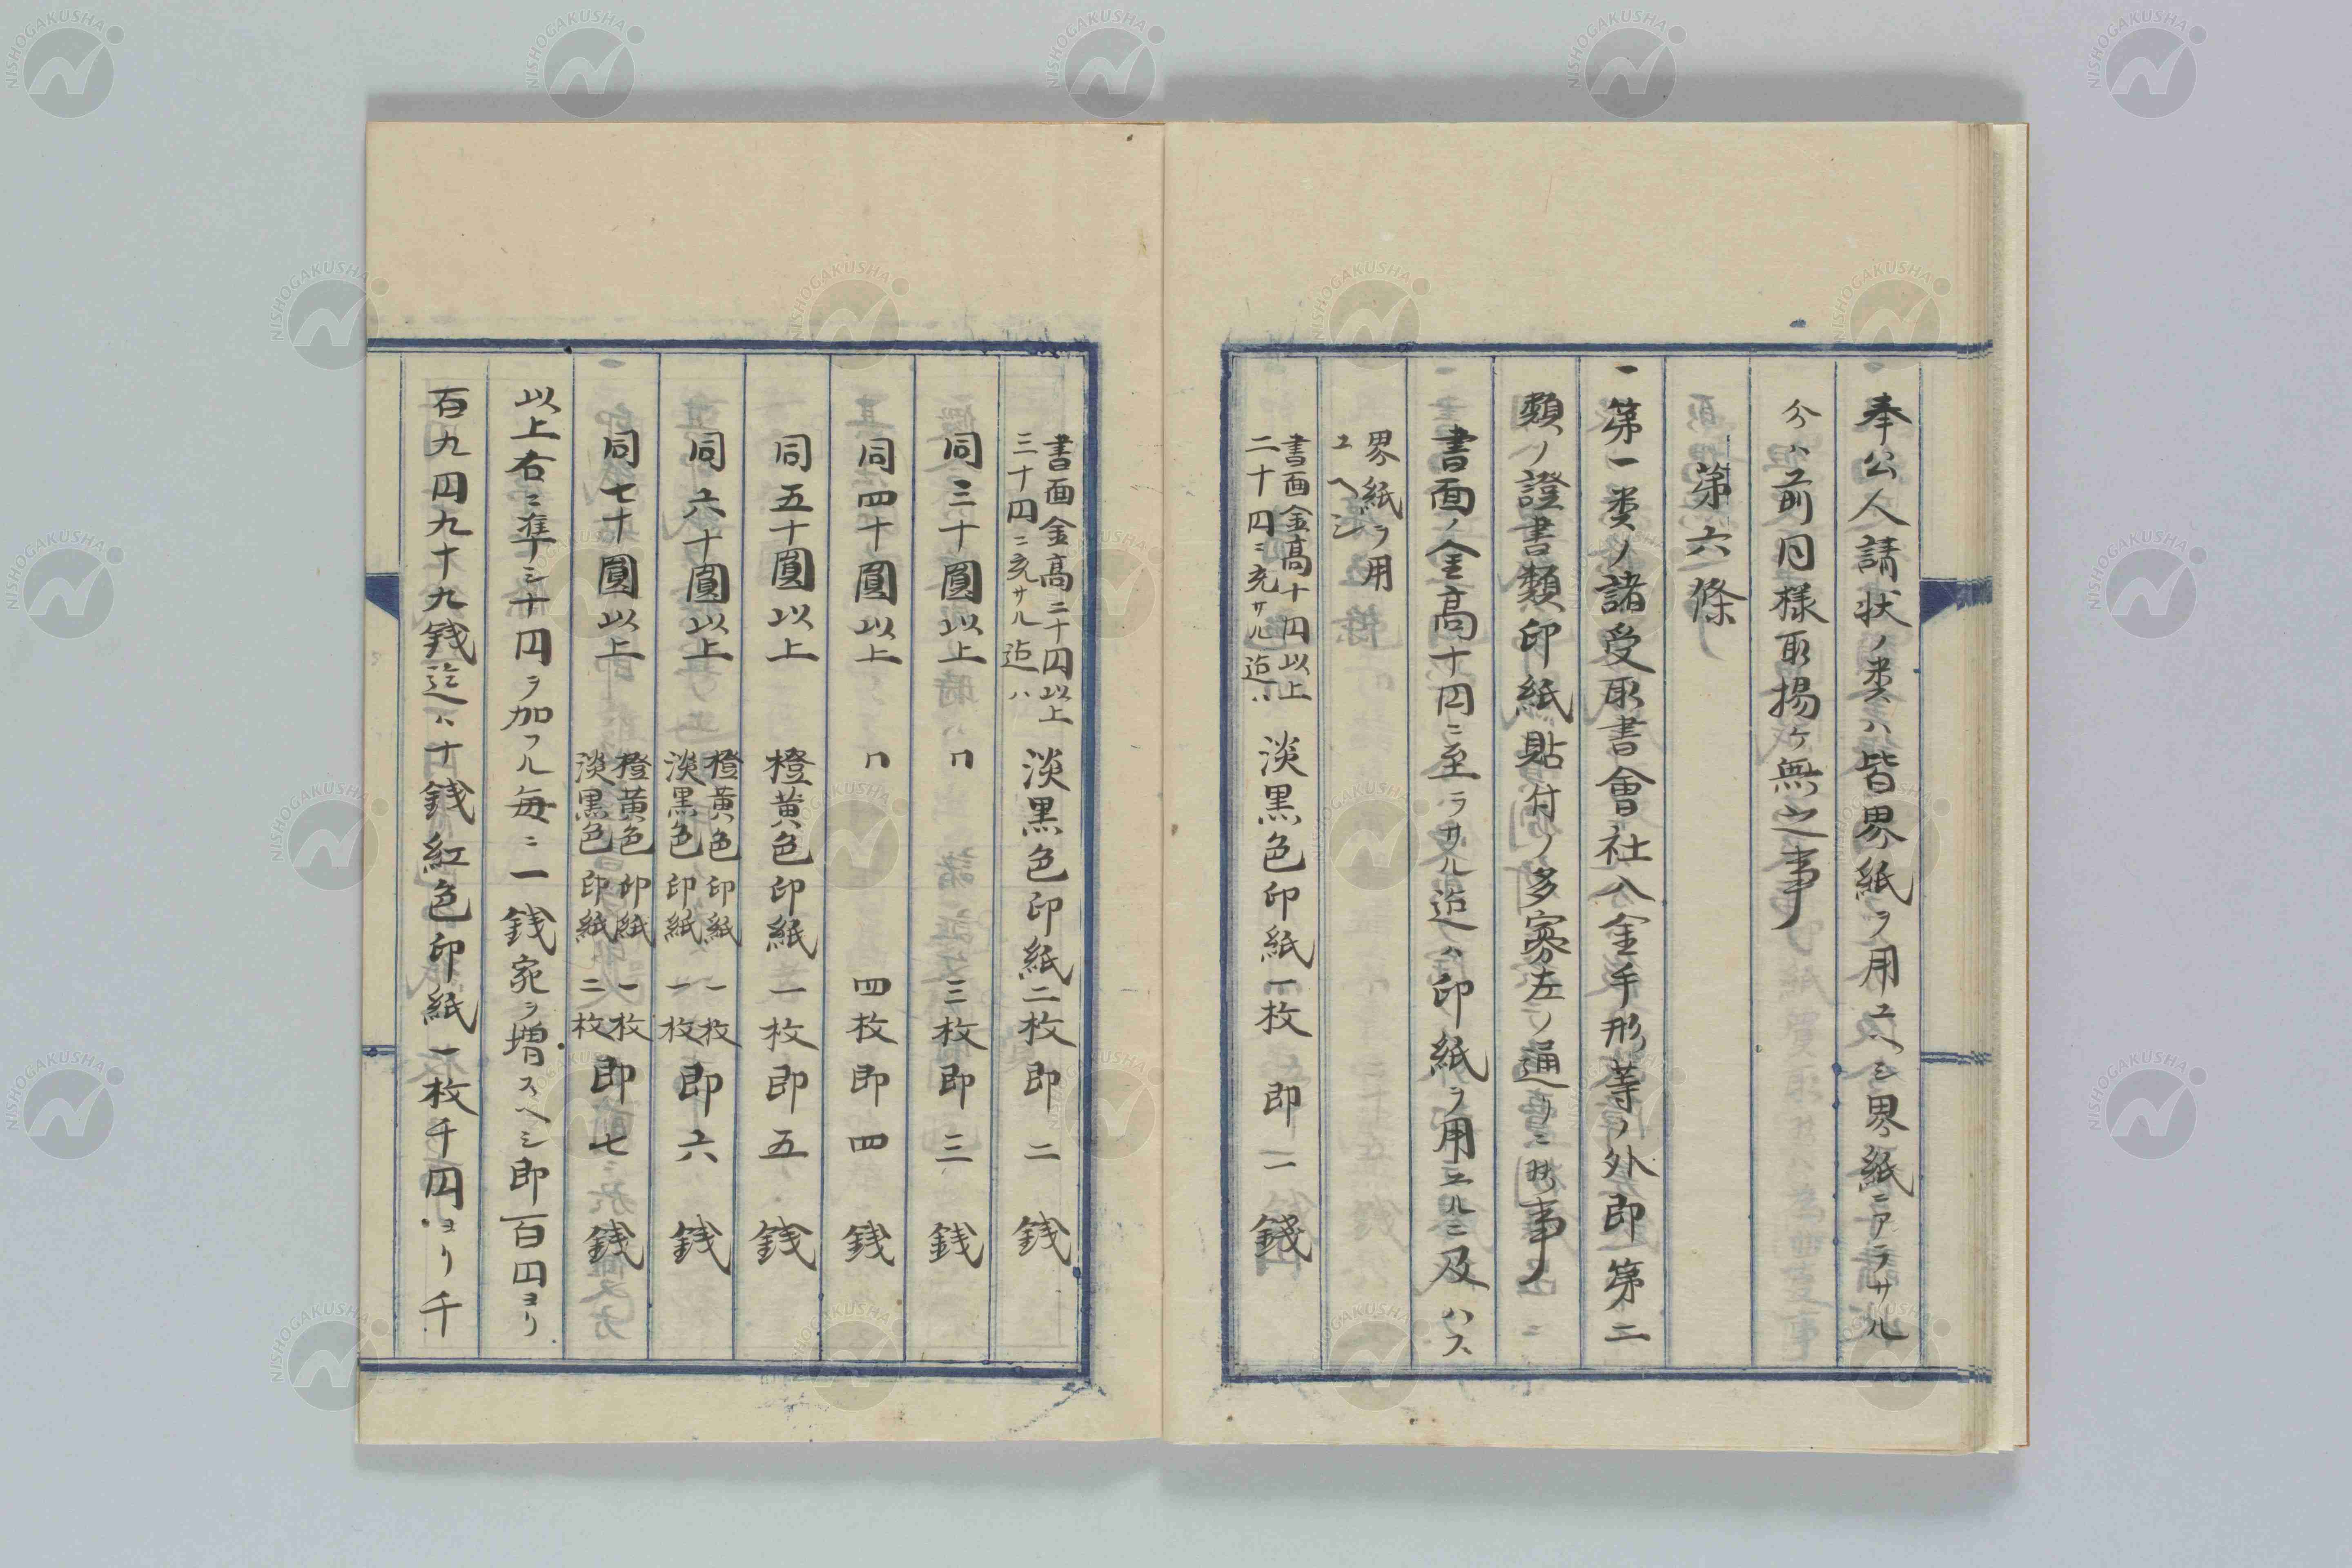 奉公人請状ノ类ハ皆界紙ヲ用ユヘシ界紙ニアラサル
分ハ前同様取揚ケ無之事
第六條
一第一类ノ諸受取書會社入金手形等ノ外即第二
類ノ證書類印紙貼付ノ多寡左ノ通リニ候事
書面ノ金高十円ニ至ラサル迠ハ印紙ヲ用ユルニ及ハス
界紙ヲ用
ユヘシ
書面金高十円以上
二十円ニ充サル迠ハ
淡黒色印紙一枚 即一錢
書面金高二十円以上
三十円ニ充サル迠ハ
淡黒色印紙二枚 即二銭
同三十圓以上 〃 三枚即三銭
同四十圓以上 〃 四枚即四銭
同五十圓以上 橙黄色印紙一枚即五銭
同六十圓以上
橙黄色印紙一枚
淡黒色印紙一枚
即六銭
同七十圓以上
橙黄色印紙一枚
淡黒色印紙二枚
即七銭
以上右ニ準シ十円ヲ加フル毎ニ一銭宛ヲ増スヘシ即百円ヨリ
百九円九十九銭迄ハ十銭紅色印紙一枚千円ヨリ千
NISHOGAKUSHA